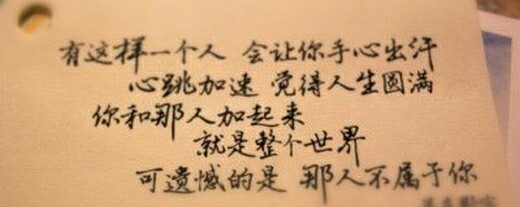 有这样一个人 会让你手心出汗
心跳加速 觉得人生圆满
你和那人加起来
就是整个世界
可遗憾的是 那人不属于你